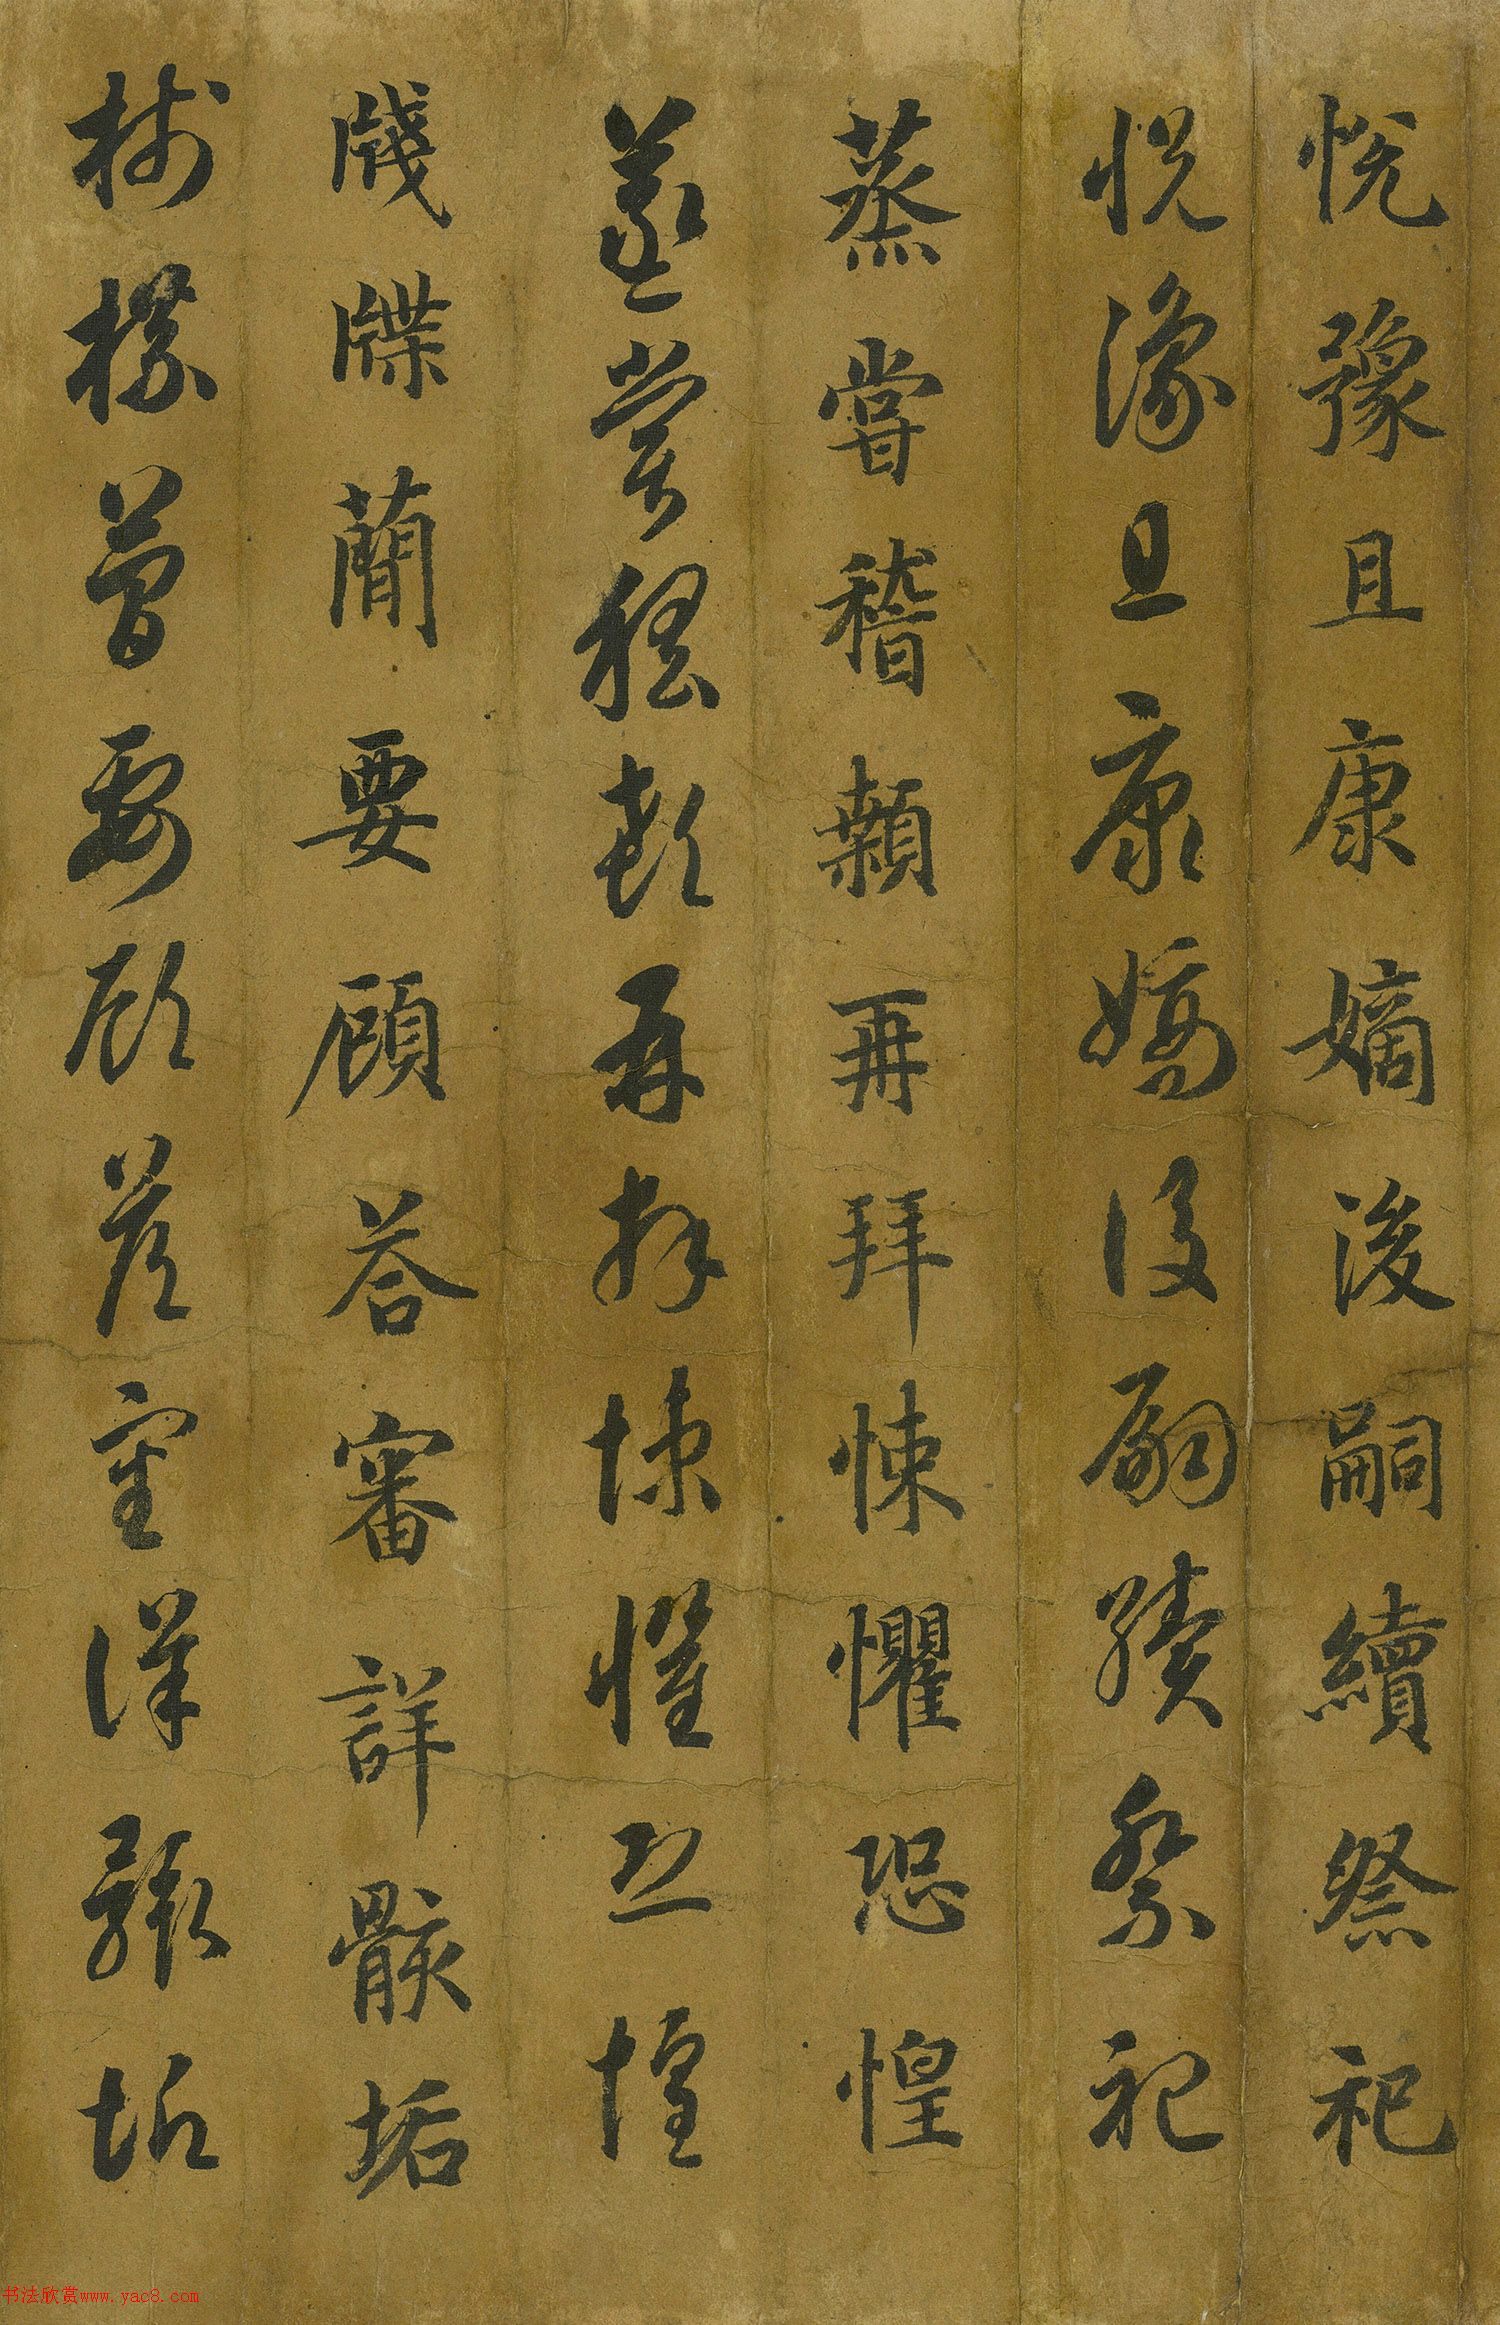 悅豫且康嫡後嗣續祭祀
悅豫且康嫡後嗣續祭祀
蒸嘗稽顙再拜悚懼恐惶
蒸嘗稽顙再拜悚懼恐惶
牋牒蕳要顧荅審詳骸垢
牋牒蕳要顧荅審詳骸垢
书法欣赏www.yac8.com